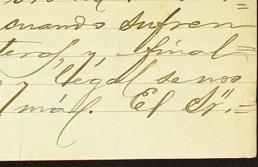 cuando sufren
teros, y, final=
legal se nos
mál. El Sr.=